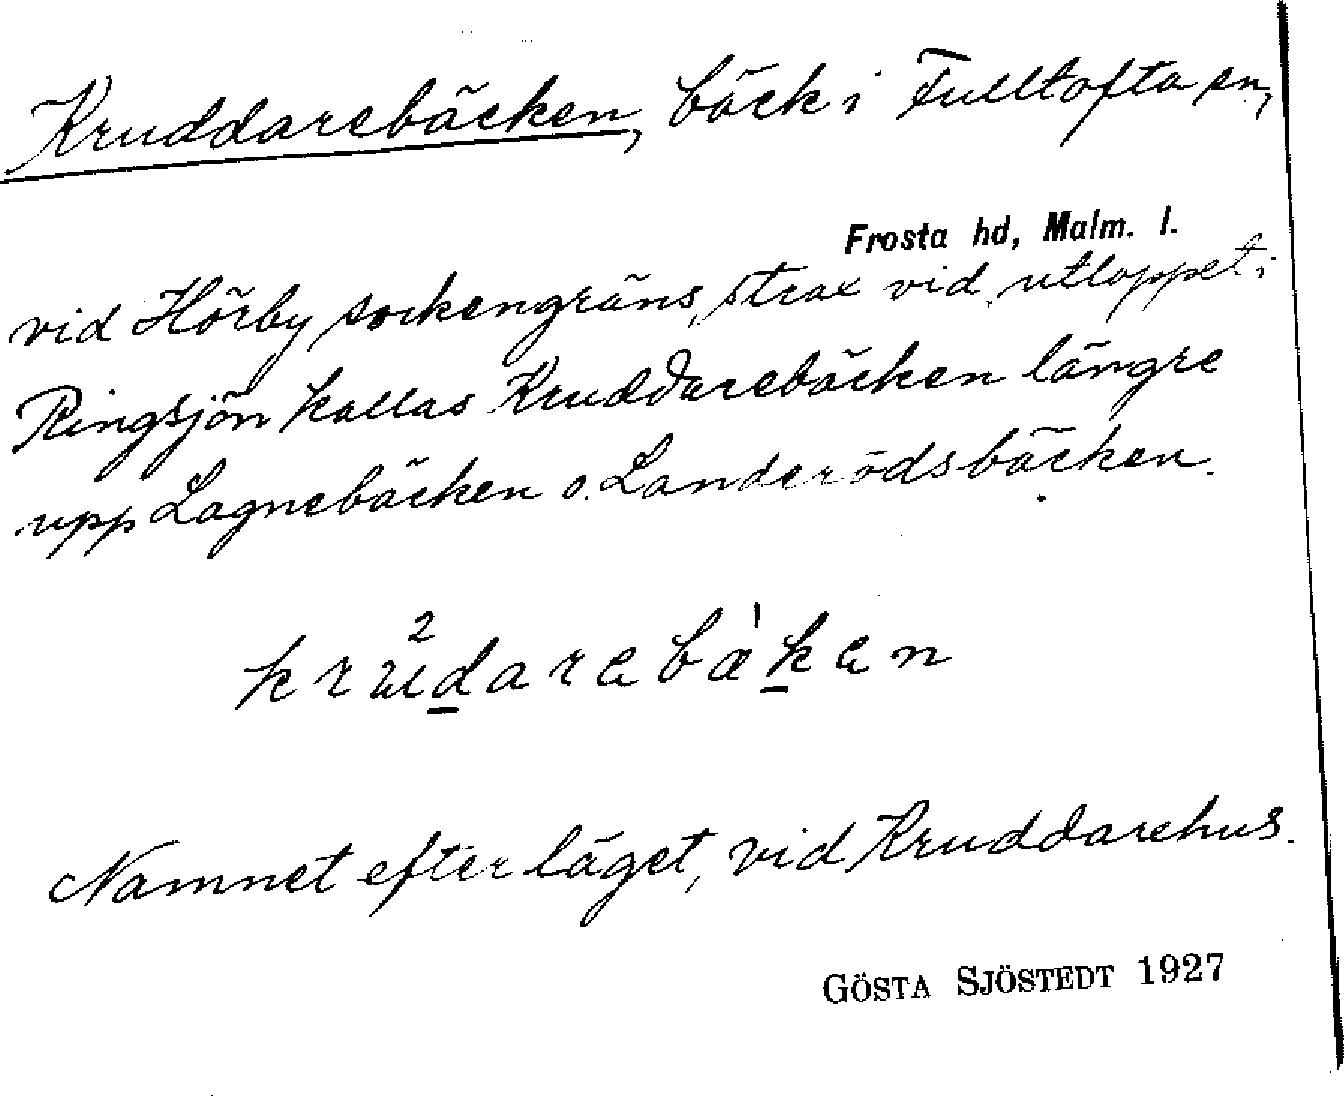 Kruddarebäcken, bäck i Fulltofta sn,
Frosta hd, Malm. l.
vid Hörby sockengräns, strax vid utloppet i
Ringsjön kallas Kruddarebäcken längre
upp Lagnebäcken o. Landerödsbäcken.
Namnet efter läget, vid Kruddarehus.
GÖSTA SJÖSTEDT 1927